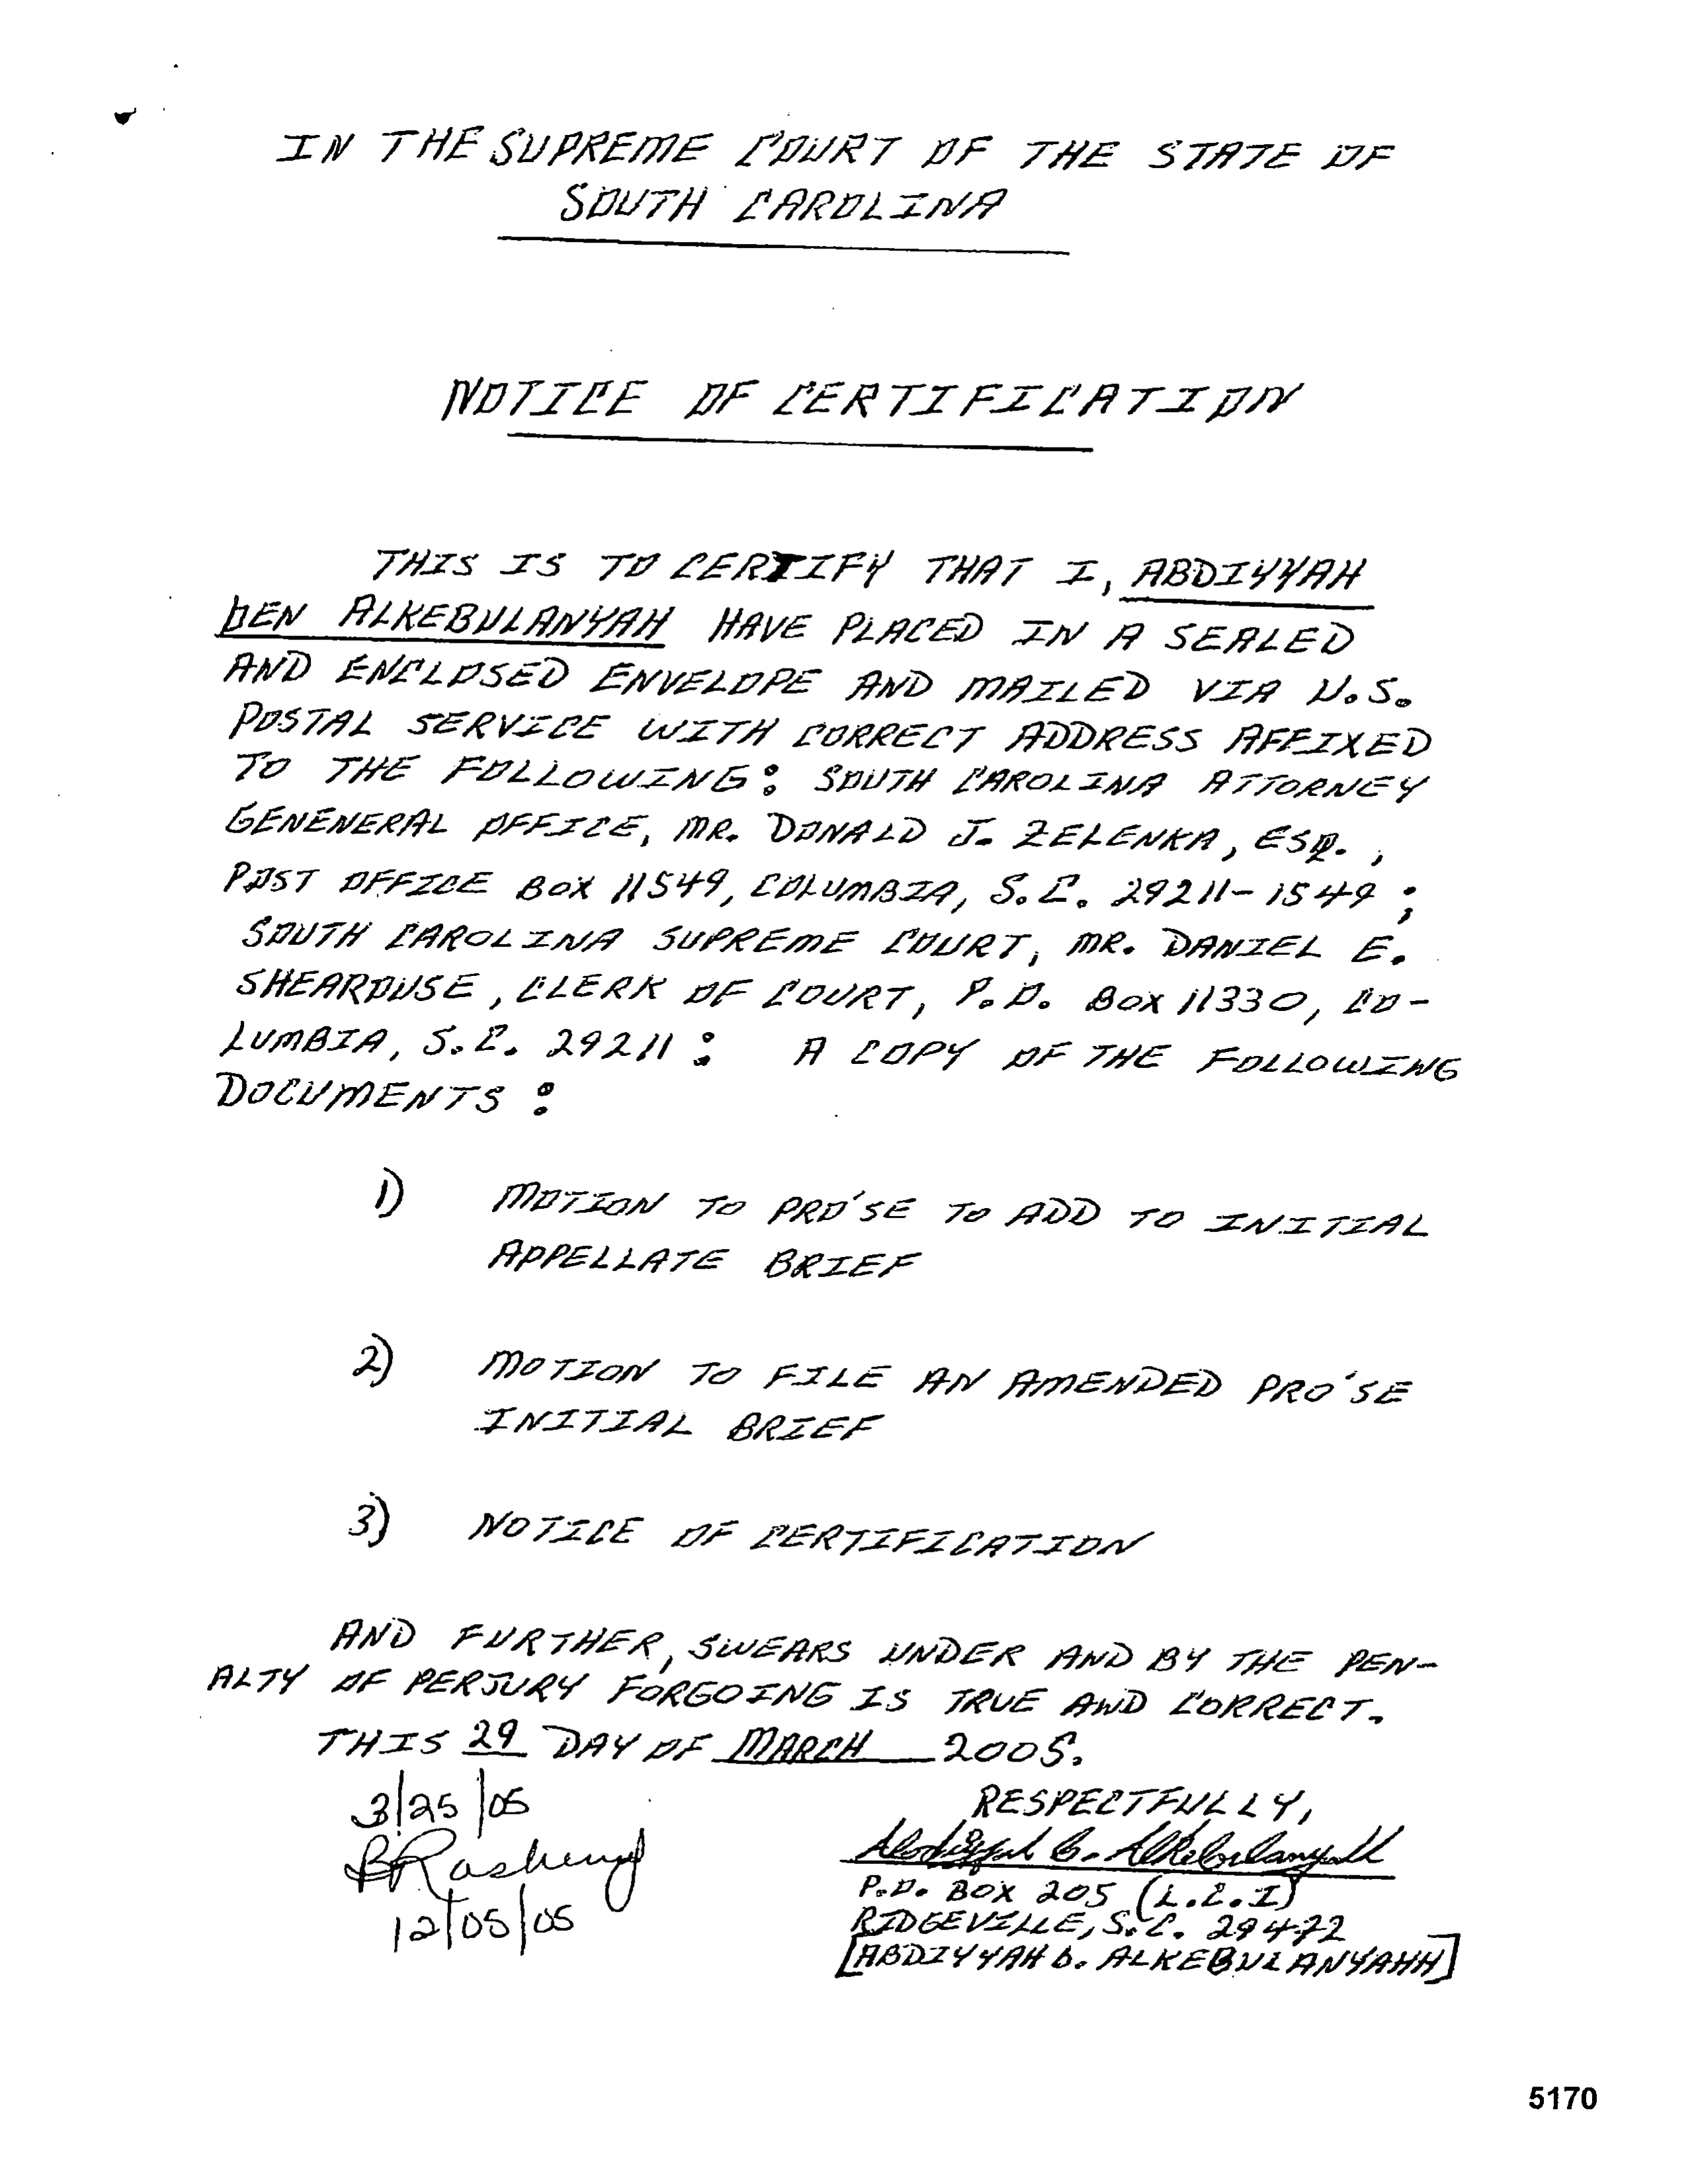 IN THE SUPREME COURT OF THE STATE OF
SOUTH CAROLINA
NOTICE OF CERTIFICATION
THIS IS TO CERTIFY THAT I, ABDIYYAH
bEN ALKEBULANYAH HAVE PLACED IN A SEALED
AND ENCLOSED ENVELOPE AND MAILED VIA U.S.
POSTAL SERVICE WITH CORRECT ADDRESS AFFIXED
TO THE FOLLOWING: SOUTH CAROLINA ATTORNEY
GENENERAL OFFICE, MR. DONALD J. ZELENKA, ESQ. ,
POST OFFICE BOX 11549, COLUMBIA, S.C. 29211-1549 ;
SOUTH CAROLINA SUPREME COURT, MR. DANIEL E.
SHEAROUSE, CLERK OF COURT, P.O. BOX 11330, CO-
LUMBIA, S.C. 29211 : A COPY OF THE FOLLOWING
DOCUMENTS :
1) MOTION TO PRO'SE TO ADD TO INITIAL
APPELLATE BRIEF
2) MOTION TO FILE AN AMENDED PRO'SE
INITIAL BRIEF
3) NOTICE OF CERTIFICATION
AND FURTHER, SWEARS UNDER AND BY THE PEN-
ALTY OF PERJURY FORGOING IS TRUE AND CORRECT.
THIS 29 DAY OF MARCH 2005.
3/25/05
RESPECTFULLY,
Abdiyyah b. Alkebulanyah
P.O. BOX 205 (L.C.I)
12/05/05
RIDGEVILLE, S.C. 29472
[ABDIYYAH b. ALKEBULANYAHH]
5170